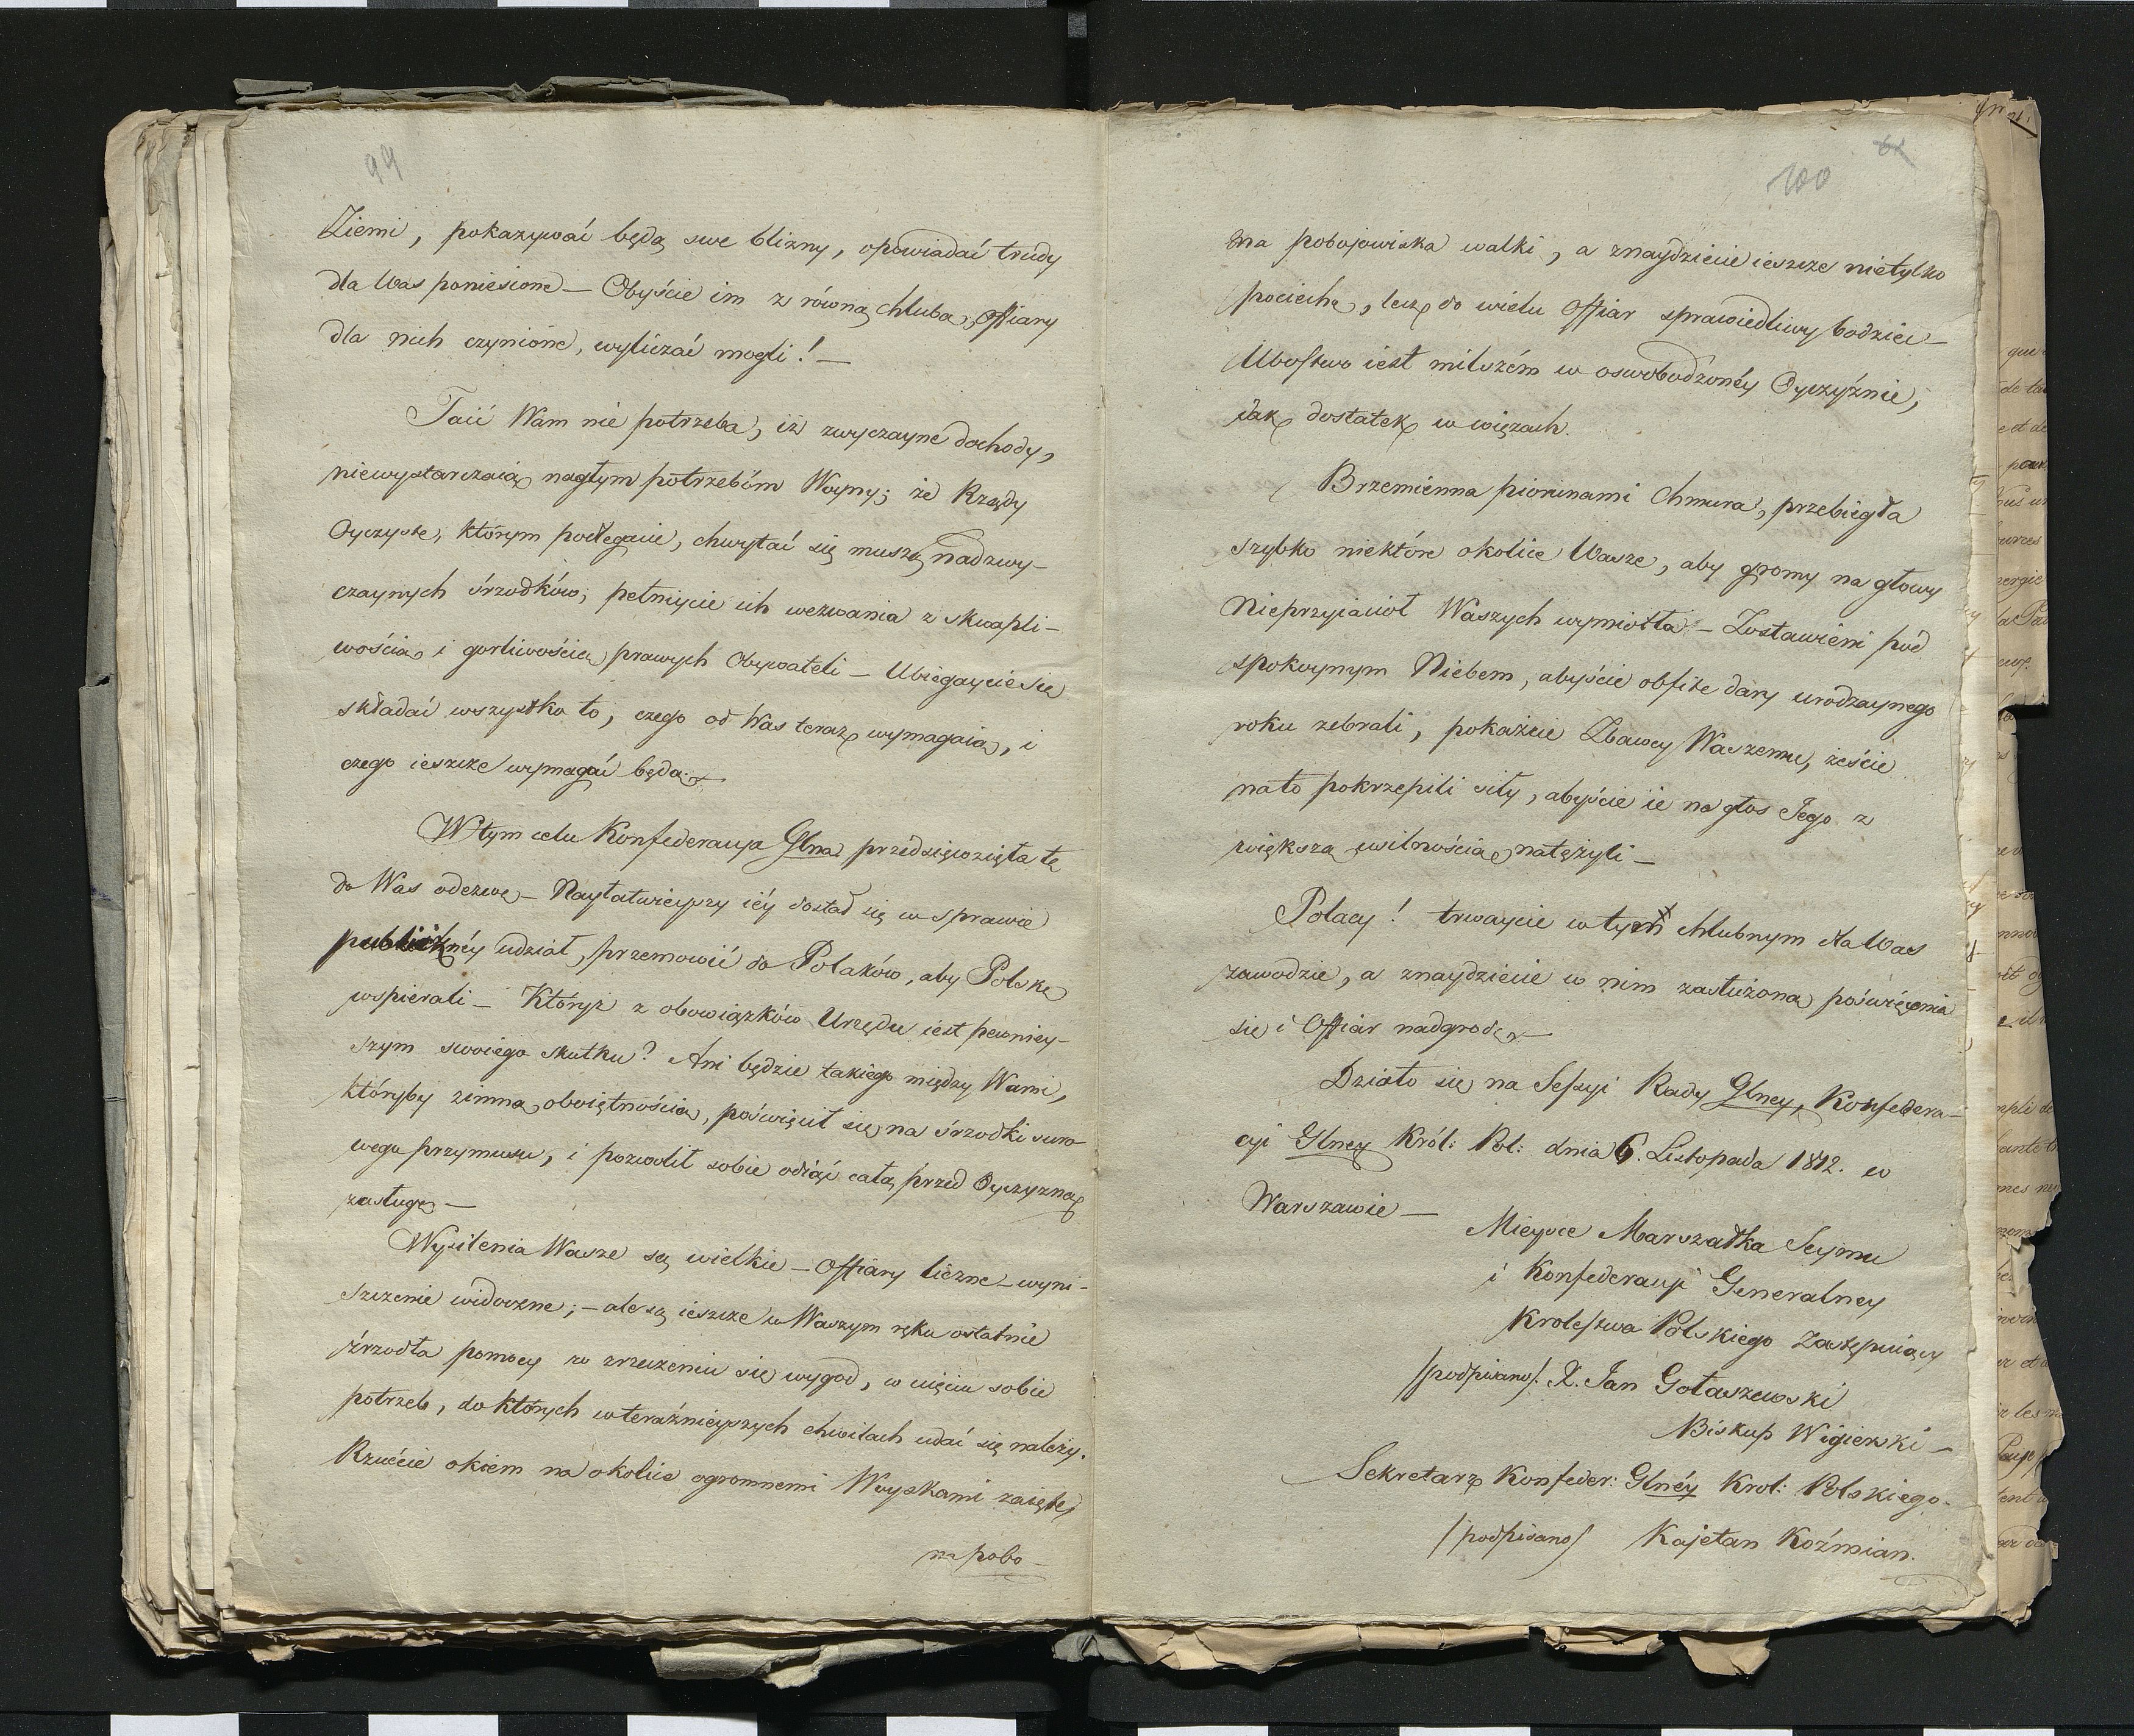 99
Ziemi, pokazywać będą swe blizny, opowiadać trudy
dla Was poniesione — Obyście im z równą chlubą, offiary
dla nich czynione, wyliczać mogli! —
Taić Wam nie potrzeba, iż zwyczayne dochody,
niewystarczaią nagłym potrzebóm Woyny; że Rządy
Oyczyste, którym podlegacie, chwytać się muszą nadzwy-
czaynych śrzodków; pełniycie ich wezwania z skwapli-
wością i gorliwością prawych Obywateli — Ubiegaycie się
składać wszystko to, czego od Was teraz wymagaią, i
czego ieszcze wymagać będą. —
W tym celu Konfederacya Glna przedsięwzięła tę
do Was odezwę — Nayłatwieyszy iéy dostał się w sprawie
publicznéy udział, przemowić do Polaków, aby Polskę
wspierali — Któryż z obowiązków Urzędu iest pewniey-
szym swoiego skutku? Ani będzie takiego między Wami,
któryby zimną oboiętnością, poświęcił się na śrzodki suro-
wego przymusu, i pozwolił sobie odiąć całą przed Oyczyzną
zasługę —
Wysilenia Wasze są wielkie — Offiary liczne — wyni-
szczenie widoczne; — ale są ieszcze w Waszym ręku ostatnie
źrzodła pomocy w zrzeczeniu się wygod, w uięciu sobie
potrzeb, do których w teraźnieyszych chwilach udać się należy.
Rzućcie okiem na okolice ogromnemi Woyskami zaięte,
na pobo-
61
100
na pobojowiska walki, a znaydziecie ieszcze nietylko
pociechę, lecz do wielu Offiar sprawiedliwy bodziec —
Ubostwo iest milszém w oswobodzonéy Oyczyźnie,
iak dostatek w więzach.
Brzemienna piorunami Chmura, przebiegła
szybko niektóre okolice Wasze, aby gromy na głowy
Nieprzyiaciół Waszych wymiotła — Zostawieni pod
spokoynym Niebem, abyście obfite dary urodzaynego
roku zebrali, pokażcie Zbawcy Waszemu, żeście
nato pokrzepili siły, abyście ie na głos Jego z
większą usilnością natężyli —
Polacy! trwaycie w tym chlubnym dla Was
zawodzie, a znaydziecie w nim zasłużoną poświęcenia
się i Offiar nadgrodę —
Działo się na Sessyi Rady Glney, Konfedera-
cyi Glney Król: Pol: dnia 6. Listopada 1812. w
Warszawie —
Mieysce Marszałka Seymu
i Konfederacyi Generalney
Krolestwa Polskiego Zastępuiący
/podpisano/. X. Jan Gołaszewski
Biskup Wigierski —
Sekretarz Konfeder: Glnéy Krol: Polskiego.
/podpisano/ Kajetan Koźmian.